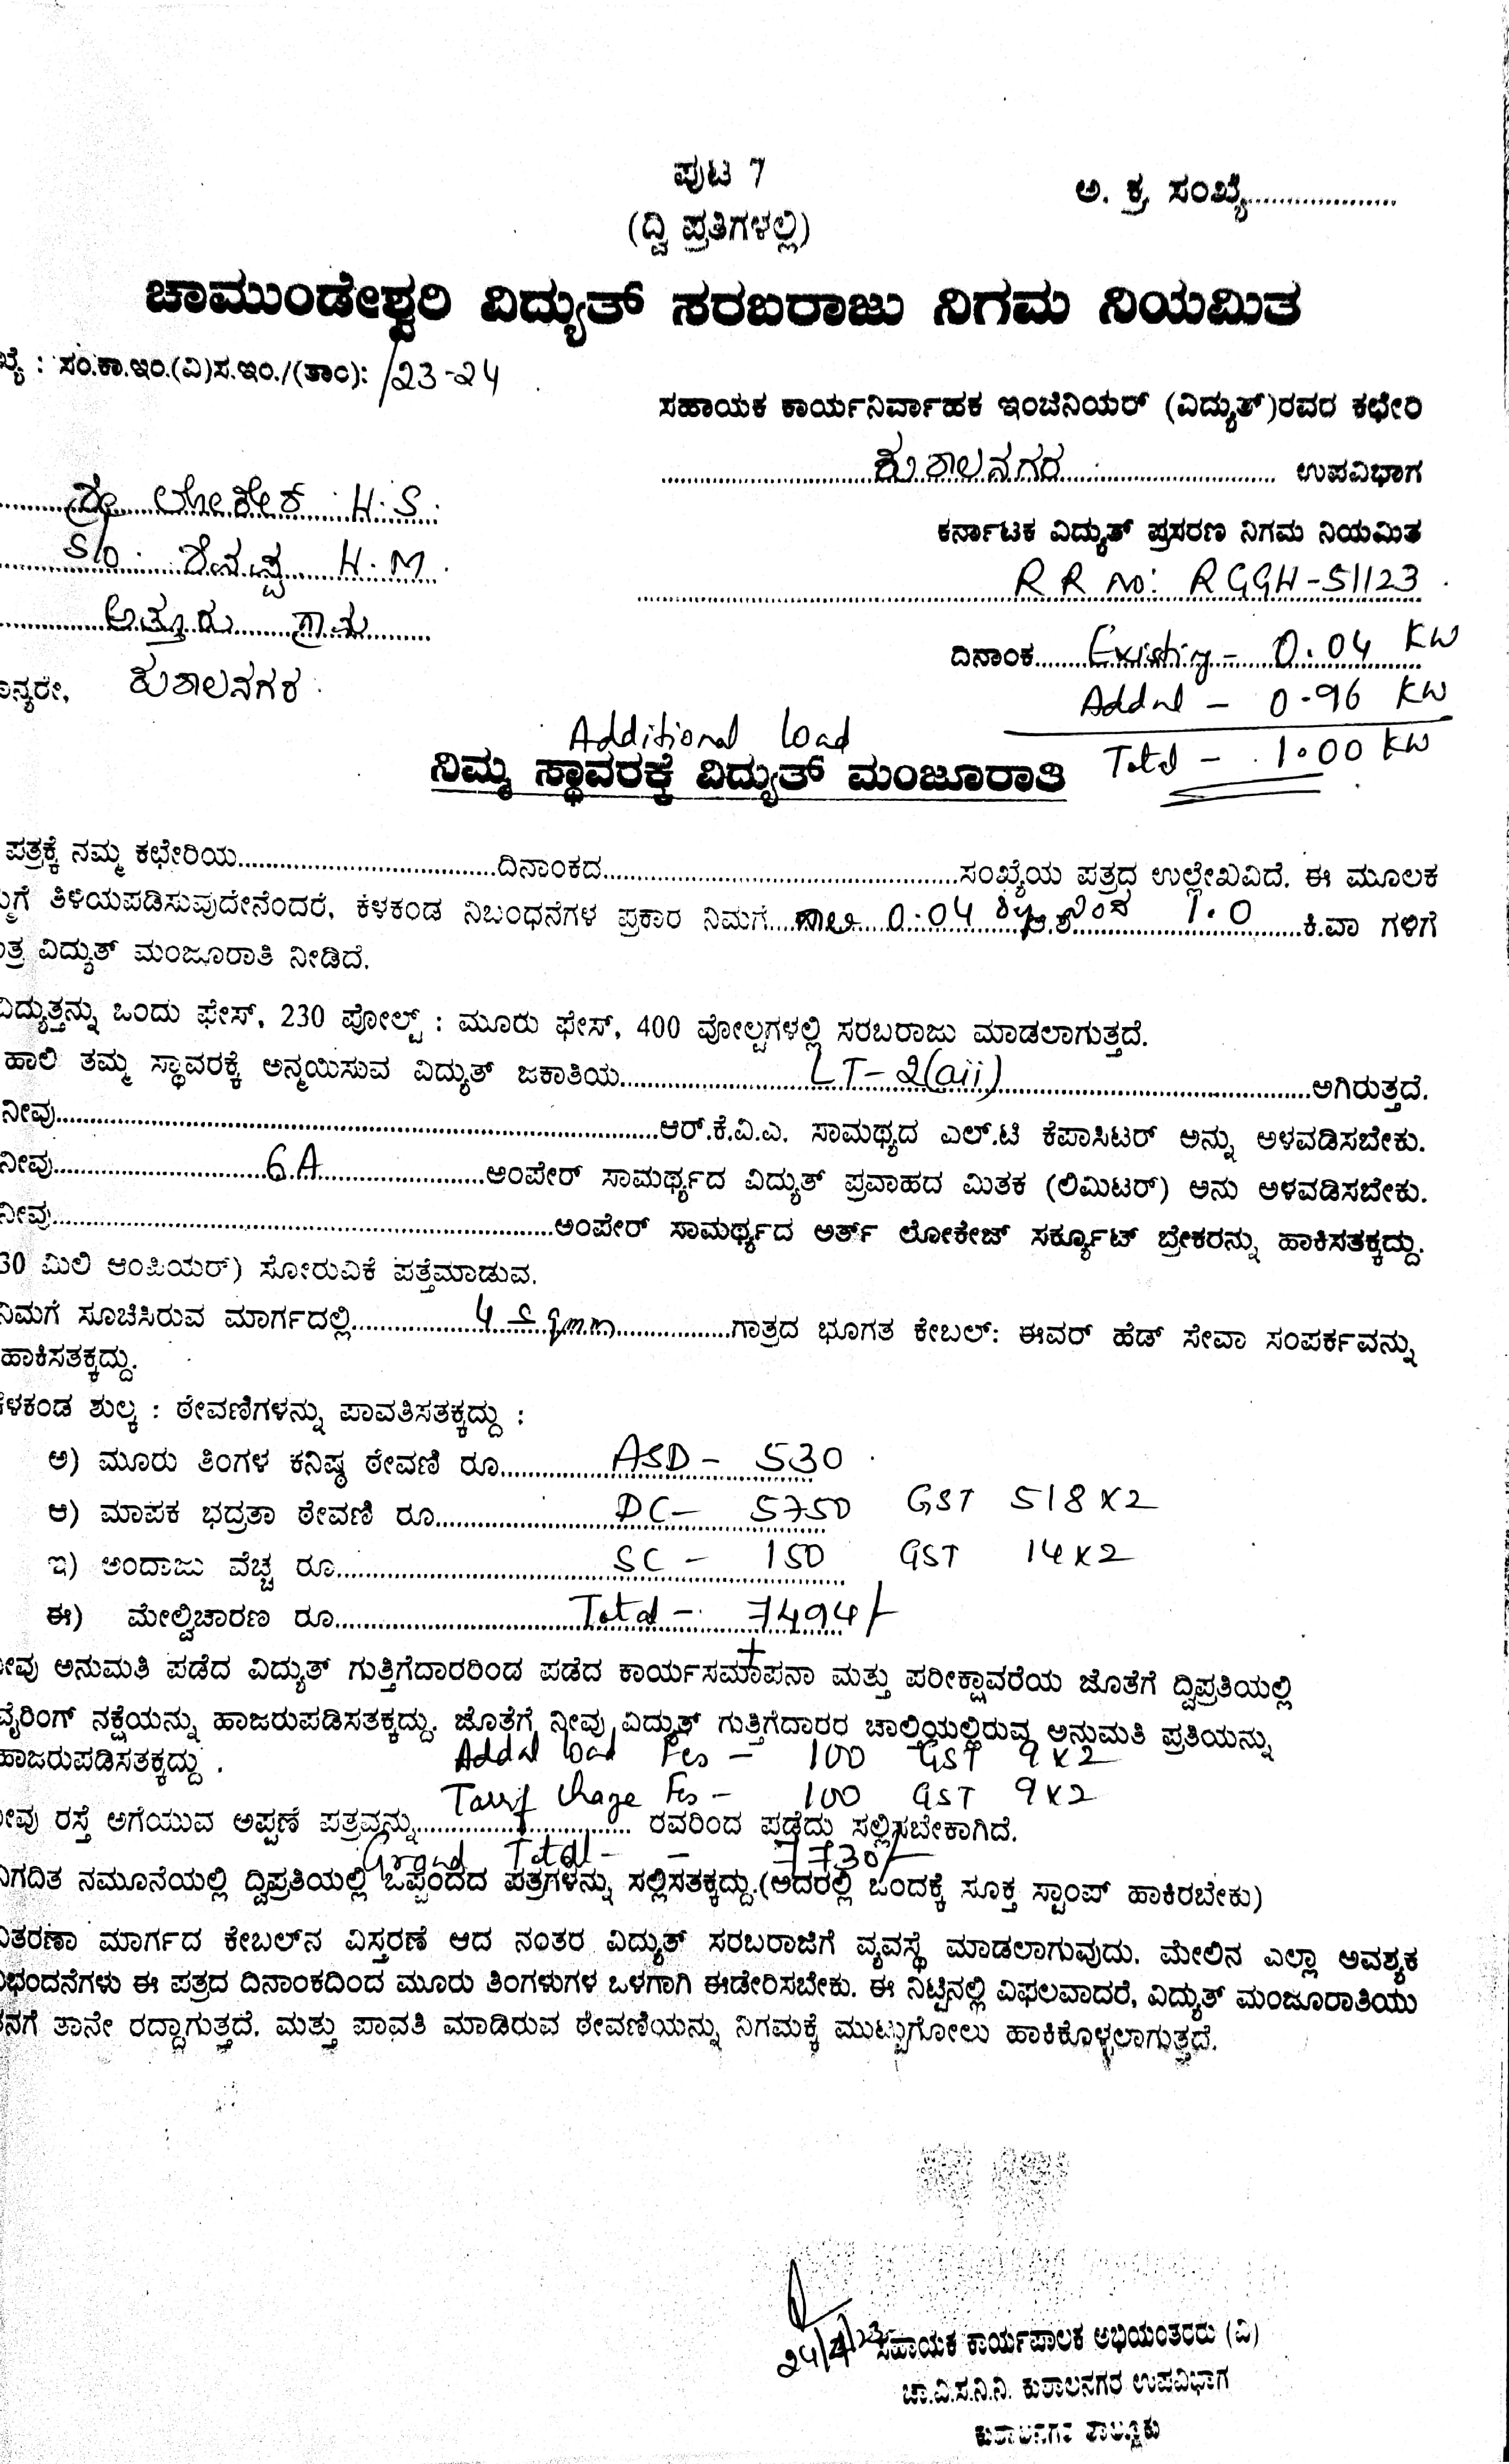 ಪುಟ 7
ಅ. ಕ್ರ ಸಂಖ್ಯೆ....................
(ದ್ವಿ ಪ್ರತಿಗಳಲ್ಲಿ)
ಚಾಮುಂಡೇಶ್ವರಿ ವಿದ್ಯುತ್ ಸರಬರಾಜು ನಿಗಮ ನಿಯಮಿತ
ಖ್ಯೆ : ಸಂ.ಕಾ.ಇಂ.(ವಿ)ಸ.ಇಂ./(ತಾಂ): /23-24
ಸಹಾಯಕ ಕಾರ್ಯನಿರ್ವಾಹಕ ಇಂಜಿನಿಯರ್ (ವಿದ್ಯುತ್)ರವರ ಕಛೇರಿ
ಕುಶಾಲನಗರ ಉಪವಿಭಾಗ
ಶ್ರೀ ಲೋಕೇಶ H.S.
ಕರ್ನಾಟಕ ವಿದ್ಯುತ್ ಪ್ರಸರಣ ನಿಗಮ ನಿಯಮಿತ
S/o. H.M.
RR No: RGGH-51123
ಅತ್ತೂರು ಗ್ರಾಮ
ದಿನಾಂಕ Existing - 0.04 KW
ಾನ್ಯರೇ, ಕುಶಾಲನಗರ.
Addnl - 0.96 KW
Additional Load
Total - 1.00 KW
ನಿಮ್ಮ ಸ್ಥಾವರಕ್ಕೆ ವಿದ್ಯುತ್ ಮಂಜೂರಾತಿ
ಪತ್ರಕ್ಕೆ ನಮ್ಮ ಕಛೇರಿಯ....................ದಿನಾಂಕದ....................ಸಂಖ್ಯೆಯ ಪತ್ರದ ಉಲ್ಲೇಖವಿದೆ. ಈ ಮೂಲಕ
ಮಗೆ ತಿಳಿಯಪಡಿಸುವುದೇನೆಂದರೆ, ಕೆಳಕಂಡ ನಿಬಂಧನೆಗಳ ಪ್ರಕಾರ ನಿಮಗೆ 0.04 1.0 ಕಿ.ವಾ ಗಳಿಗೆ
ತ್ರ ವಿದ್ಯುತ್ ಮಂಜೂರಾತಿ ನೀಡಿದೆ.
ವಿದ್ಯುತ್ತನ್ನು ಒಂದು ಫೇಸ್, 230 ವೋಲ್ಟ್ : ಮೂರು ಫೇಸ್, 400 ವೋಲ್ಟಗಳಲ್ಲಿ ಸರಬರಾಜು ಮಾಡಲಾಗುತ್ತದೆ.
ಹಾಲಿ ತಮ್ಮ ಸ್ಥಾವರಕ್ಕೆ ಅನ್ಮಯಿಸುವ ವಿದ್ಯುತ್ ಜಕಾತಿಯ LT-2(aii) ಆಗಿರುತ್ತದೆ.
ನೀವು....................ಆರ್.ಕೆ.ವಿ.ಎ. ಸಾಮಥ್ಯದ ಎಲ್.ಟಿ ಕೆಪಾಸಿಟರ್ ಅನ್ನು ಅಳವಡಿಸಬೇಕು.
ನೀವು 6A ಅಂಪೇರ್ ಸಾಮರ್ಥ್ಯದ ವಿದ್ಯುತ್ ಪ್ರವಾಹದ ಮಿತಕ (ಲಿಮಿಟರ್) ಅನು ಅಳವಡಿಸಬೇಕು.
ನೀವು....................ಅಂಪೇರ್ ಸಾಮರ್ಥ್ಯದ ಅರ್ತ್ ಲೋಕೇಜ್ ಸರ್ಕ್ಯೂಟ್ ಬ್ರೇಕರನ್ನು ಹಾಕಿಸತಕ್ಕದ್ದು.
30 ಮಿಲಿ ಆಂಪಿಯರ್) ಸೋರುವಿಕೆ ಪತ್ತೆಮಾಡುವ.
ನಿಮಗೆ ಸೂಚಿಸಿರುವ ಮಾರ್ಗದಲ್ಲಿ 4 sqmm ಗಾತ್ರದ ಭೂಗತ ಕೇಬಲ್: ಈವರ್ ಹೆಡ್ ಸೇವಾ ಸಂಪರ್ಕವನ್ನು
ಹಾಕಿಸತಕ್ಕದ್ದು.
ಕೆಳಕಂಡ ಶುಲ್ಕ : ಠೇವಣಿಗಳನ್ನು ಪಾವತಿಸತಕ್ಕದ್ದು :
ಅ) ಮೂರು ತಿಂಗಳ ಕನಿಷ್ಠ ಠೇವಣಿ ರೂ ASD - 530
ಆ) ಮಾಪಕ ಭದ್ರತಾ ಠೇವಣಿ ರೂ DC - 5750 GST 518x2
ಇ) ಅಂದಾಜು ವೆಚ್ಚ ರೂ SC - 150 GST 14x2
ಈ) ಮೇಲ್ವಿಚಾರಣ ರೂ Total - 7494/-
+
ೀವು ಅನುಮತಿ ಪಡೆದ ವಿದ್ಯುತ್ ಗುತ್ತಿಗೆದಾರರಿಂದ ಪಡೆದ ಕಾರ್ಯಸಮಾಪನಾ ಮತ್ತು ಪರೀಕ್ಷಾವರೆಯ ಜೊತೆಗೆ ದ್ವಿಪ್ರತಿಯಲ್ಲಿ
ವೈರಿಂಗ್ ನಕ್ಷೆಯನ್ನು ಹಾಜರುಪಡಿಸತಕ್ಕದ್ದು. ಜೊತೆಗೆ ನೀವು ವಿದ್ಯುತ್ ಗುತ್ತಿಗೆದಾರರ ಚಾಲ್ತಿಯಲ್ಲಿರುವ ಅನುಮತಿ ಪ್ರತಿಯನ್ನು
ಹಾಜರುಪಡಿಸತಕ್ಕದ್ದು. Addnl load Fes - 100 GST 9x2
Tarrif Chage Fes - 100 GST 9x2
ೀವು ರಸ್ತೆ ಅಗೆಯುವ ಅಪ್ಪಣೆ ಪತ್ರವನ್ನು.................... ರವರಿಂದ ಪಡೆದು ಸಲ್ಲಿಸಬೇಕಾಗಿದೆ.
Grand Total - 7730/-
ನಿಗದಿತ ನಮೂನೆಯಲ್ಲಿ ದ್ವಿಪ್ರತಿಯಲ್ಲಿ ಒಪ್ಪಂದದ ಪತ್ರಗಳನ್ನು ಸಲ್ಲಿಸತಕ್ಕದ್ದು.(ಅದರಲ್ಲಿ ಒಂದಕ್ಕೆ ಸೂಕ್ತ ಸ್ಟಾಂಪ್ ಹಾಕಿರಬೇಕು)
ವಿತರಣಾ ಮಾರ್ಗದ ಕೇಬಲ್‌ನ ವಿಸ್ತರಣೆ ಆದ ನಂತರ ವಿದ್ಯುತ್ ಸರಬರಾಜಿಗೆ ವ್ಯವಸ್ಥೆ ಮಾಡಲಾಗುವುದು. ಮೇಲಿನ ಎಲ್ಲಾ ಅವಶ್ಯಕ
ಿಭಂದನೆಗಳು ಈ ಪತ್ರದ ದಿನಾಂಕದಿಂದ ಮೂರು ತಿಂಗಳುಗಳ ಒಳಗಾಗಿ ಈಡೇರಿಸಬೇಕು. ಈ ನಿಟ್ಟಿನಲ್ಲಿ ವಿಫಲವಾದರೆ, ವಿದ್ಯುತ್ ಮಂಜೂರಾತಿಯು
ನಗೆ ತಾನೇ ರದ್ದಾಗುತ್ತದೆ. ಮತ್ತು ಪಾವತಿ ಮಾಡಿರುವ ಠೇವಣಿಯನ್ನು ನಿಗಮಕ್ಕೆ ಮುಟ್ಟುಗೋಲು ಹಾಕಿಕೊಳ್ಳಲಾಗುತ್ತದೆ.
24/4/23 ಸಹಾಯಕ ಕಾರ್ಯಪಾಲಕ ಅಭಿಯಂತರರು (ವಿ)
ಚಾ.ವಿ.ಸ.ನಿ.ನಿ. ಕುಶಾಲನಗರ ಉಪವಿಭಾಗ
ಕುಶಾಲನಗರ ತಾಲ್ಲೂಕು